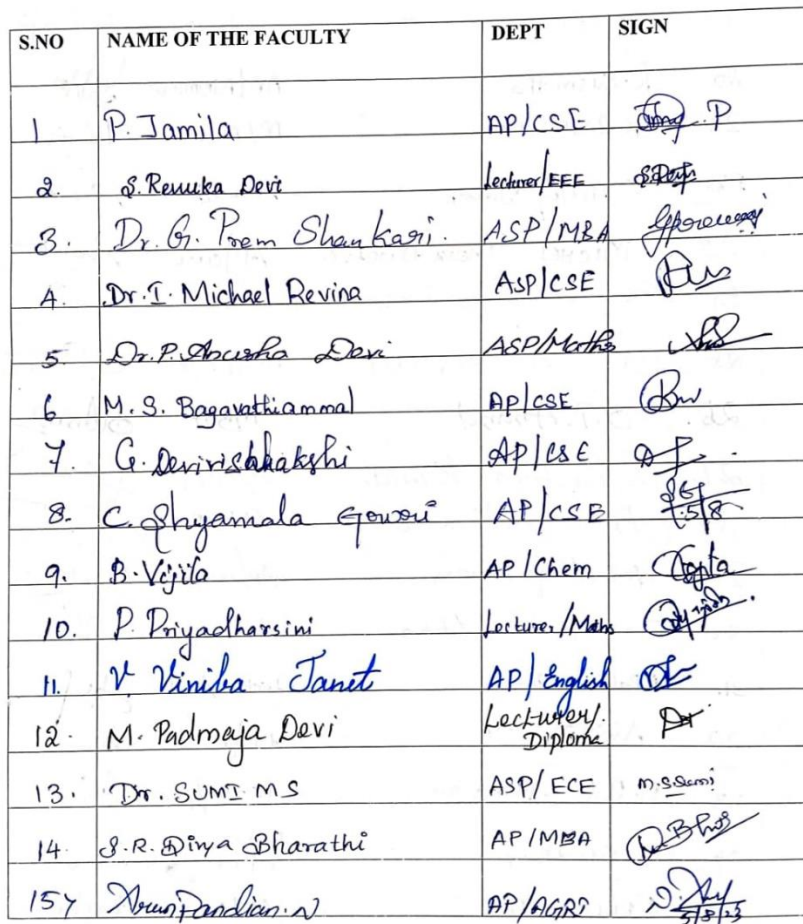 S.NO NAME OF THE FACULTY DEPT SIGN
1 P. Jamila AP/CSE P
2. S. Renuka Devi Lecturer/EEE S.Devi
3. Dr. G. Prem Shankari. ASP/MBA
4. Dr. I. Michael Revina ASP/CSE
5. Dr. P. Anusha Devi ASP/Maths
6. M. S. Bagavathiammal AP/CSE
7. G. Devivishalakshi AP/CSE
8. C. Shyamala Gowri AP/CSE 5/8
9. B. Vijila AP/Chem
10. P. Priyadharsini Lecturer/Maths
11. V Viniba Janet AP/English
12. M. Padmaja Devi Lecturer/
Diploma
13. Dr. SUMI MS ASP/ECE M.S.Sumi
14. S.R. Divya Bharathi AP/MBA
15 Arun Pandian. N AP/AGRI
5/8/25